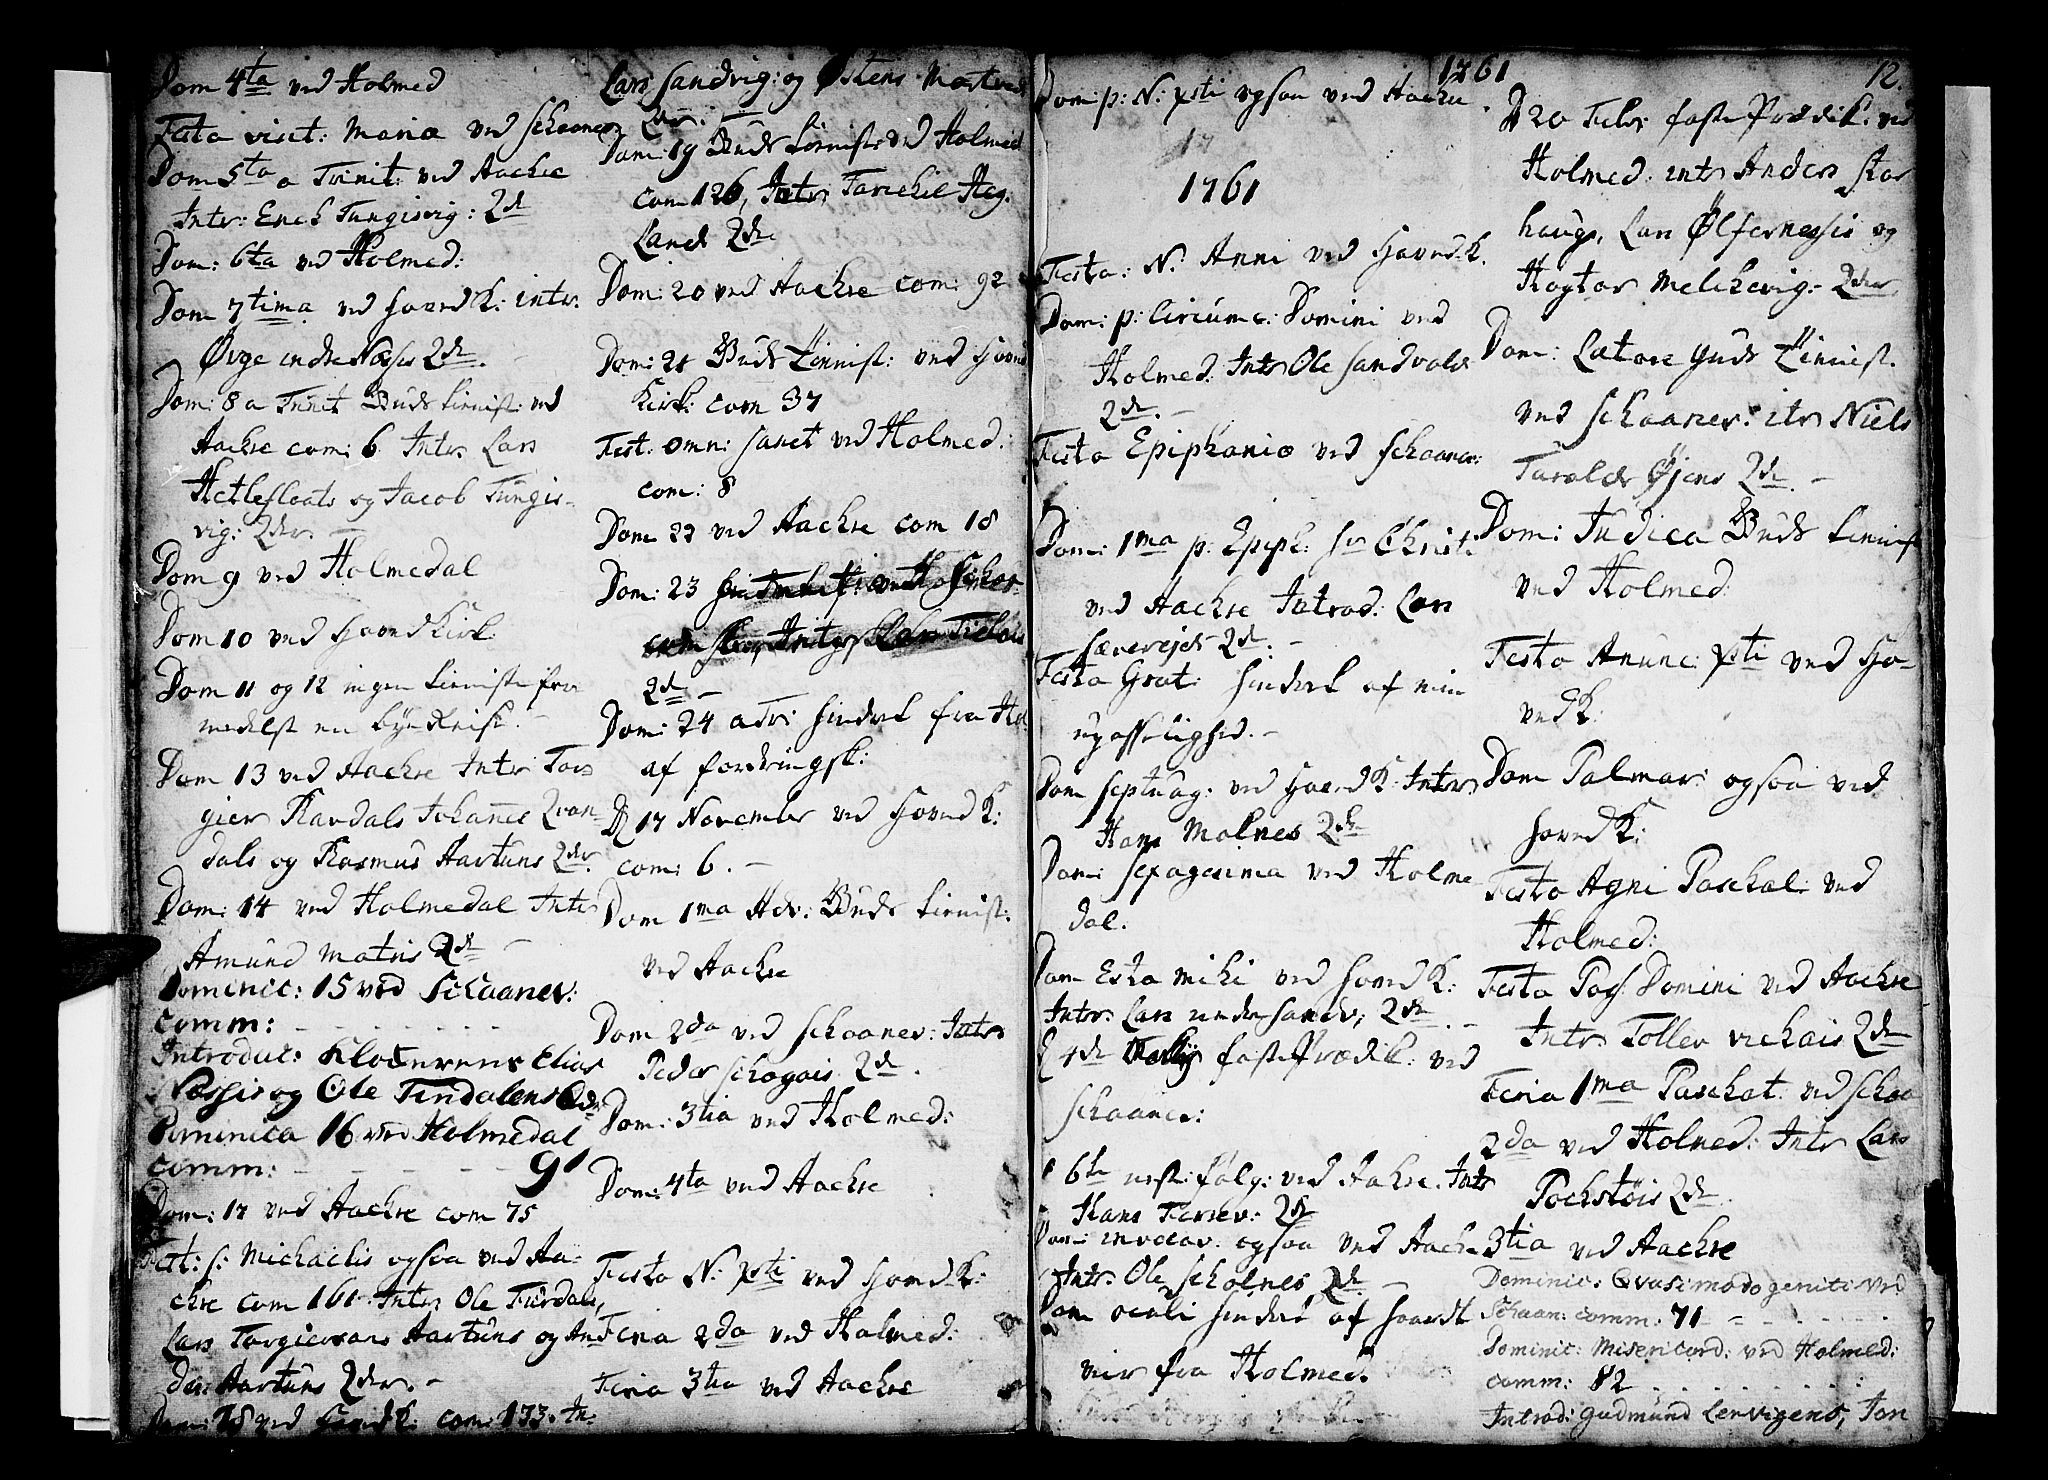 Dom 4ta ved Holmed
Festo visit: Mariæ ved Schaanev
Dom 5ta a Trinit: ved Aachre
Intr: Erich Tungisvig: 2de
Dom: 6ta ved Holmed:
Dom 7tima ved HovedK: intr:
Øvge indre Næsses 2de.
Dom: 8 a Trinit Guds tienist: ved
Aachre com: 6 Intr: Lars
Hetlefloats og Jacob Tungis-
vig: 2der. -
Dom 9 ved Holmedal
Dom 10 ved HovedKirk:
Dom 11 og 12 ingen tieniste for
medelst en
Dom 13 ved Aachre Intr: Tor
gier Kandals Johannes Qvan-
dals og Rasmus Aartuns 2der.
Dom: 14 ved Holmedal Intr
Amund Matris 2de -
Dominic: 15 ved Schaanev:
comm: - - - - - -
Introduc: Elias
Næssis og Ole Tindalens 2der
Dominica 16 ved Holmedal
comm: - - - - - 91
Dom: 17 ved Aachre com 75
Fest: S: Michaelis ogsaa ved Aa-
chre com 161 Intr: Ole Fürdals,
Lars Torgiersons Aartuns og An-
ders Aartuns 2der. -
Dom: 18 ved HovedK: com: 173. In-
Lars Sandvig: og Østens

Dom: 19 Guds tienist: ved Holmed
com 126, Intr Tarchie Heg-
Land 2de
Dom: 20 ved Aachre com: 92
Dom: 21 Guds Tienist: ved Hoved
Kirk: com 37
Fest: omn: sanct ved Holmed:
com: 8
Dom 22 ved Aachre com 18
Dom: 23
Intr:
2de -
Dom: 24 a Tr: hindret fra Hol
af fordringsk:
D 17 November ved HovedK:
com: 6. -
Dom 1ma Adv: Guds tienist:
ved Aachre
Dom 2da ved Schaanev: Intr
Peder Schogais 2de.
Dom: 3tia ved Holmed:
Dom: 4ta ved Aachre
Festo N: Xsti ved HovedK:
Feria 2da ved Holmed:
Feria 3tia ved Aachre
1761
Dom: p: N: Xsti ogsaa ved Aachre.
17
1761
Festo: N. Anni ved HovedK.
Dom: p: Circumc: Domini ved
Holmed: Intr Ole Sandvolds
2de. -
Festo Epiphaniæ ved Schaanev:
Dom: 1ma p: Epiph:
ved Aachre Introd: Lars
Særevejds 2de. -
Festo hindret af min
upasselighed. -
Dom Septuag: ved HovedK: Intr:
Hans Molnes 2de
Dom: Sexagesima ved Holme-
dal.
Dom Esto mihi ved HovedK:
Intr: Lars nedre Sandv: 2de -
D 4de fastePrædik: ved
Schaanev:
D 6te nest: følg: ved Aachre. Intr
Hans Ferrev: 2de
Dom: invocav: ogsaa ved Aach-
Intr: Ole Scholnes 2de -
Dom oculi hindret af haardt
veir fra Holmed.
12.
D 20 Febr: faste Prædik: ved
Holmed: intr Anders Stor
haugs, Lars Ølfernessis og
Hogtor Melchevig: 2der
Dom: Lætare Guds tienist.
ved Schaanev: itr Niels
Taralds Øjens 2de. -
Dom: Judica Guds tienist
ved Holmed:
Festo Anunc: Xsti ved Ho-
vedK:
Dom Palmar: ogsaa ved
HovedK:
Festo Agni Paschal: ved
Holmed:
Festo Pass: Domini ved Aachre
Intr: Tollev vichais 2de
Feria 1ma Paschat. ved Schaa
2da ved Holmed: Intr Lars
Pochstøis 2de.
3tia ved Aachre
Dominic: Qvasimodogeniti ved
Schaan: comm: 71 - - - - -
Dominic: Misericord: ved Holmed:
comm: 82 . . . . . . . .
Introd: Gudmund Lervigens, Jon